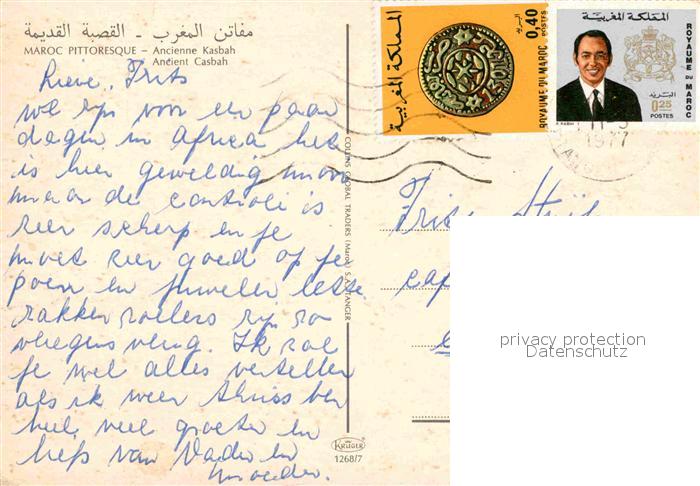 مفاتن المغرب - القصبة القديمة
MAROC PITTORESQUE – Ancienne Kasbah
Ancient Casbah
Lieve, Frits
we zijn voor een paar
dagen in Africa het
is hier geweldig mooi
maar de controle is
zeer scherp en je
moet zeer goed op je
poen en juwelen letten
zakkenrollers zijn zo
vliegens vlug. Ik zal
je wel alles vertellen
als ik weer thuis ben
heel veel groeten en
liefs van Vader en
moeder.
COLLINS GLOBAL TRADERS (Maroc) S.A. TANGER
KRÜGER
1268/7
المملكة المغربية
0.40
البريد
POSTES
ROYAUME DU MAROC
المملكة المغربية
ROYAUME DU MAROC
البريد
0.25
POSTES
1977
Frits
privacy protection
Datenschutz